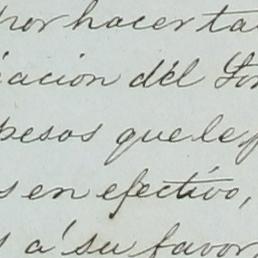 por hacer ta
iacion del Go
pesos que le p
s en efectivo,
s a' su favor